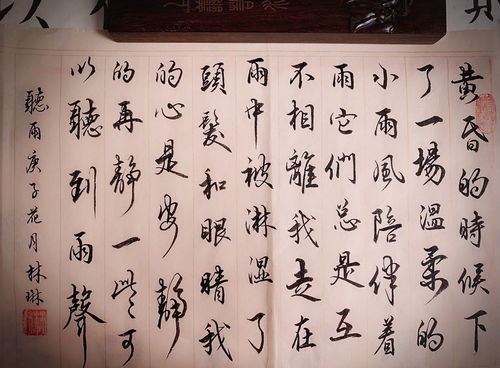 黄昏的時候下
了一場溫柔的
小雨風陪伴着
雨它們总是互
不相離我走在
雨中被淋湿了
頭髮和眼睛我
的心是安静
的再静一些可
以聽到雨聲
聽雨庚子花月林琳